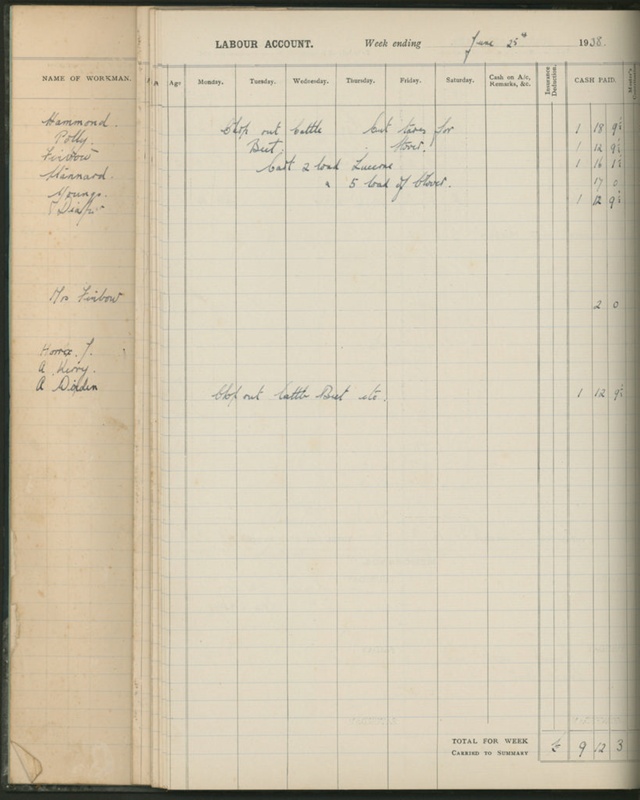 LABOUR ACCOUNT. Week ending June 25th 1938.
NAME OF WORKMAN. Age Monday. Tuesday. Wednesday. Thursday. Friday. Saturday. Cash on A/c, Remarks, &c. Insurance Deduction. CASH PAID.
Hammond. Chop out Cattle Cut tares for 1 18 9½
Polly. Beet. 1 12 9½
Firbow Cart 2 load Lucerne 1 16 1½
Kinnard. " 5 load of Clover. 17 0
Youngs. 1 12 9½
Mrs Firbow 2 0
Horrex. J.
A
A Dixden Chop out Cattle Beet etc. 1 12 9½
TOTAL FOR WEEK £ 9 12 3
CARRIED TO SUMMARY